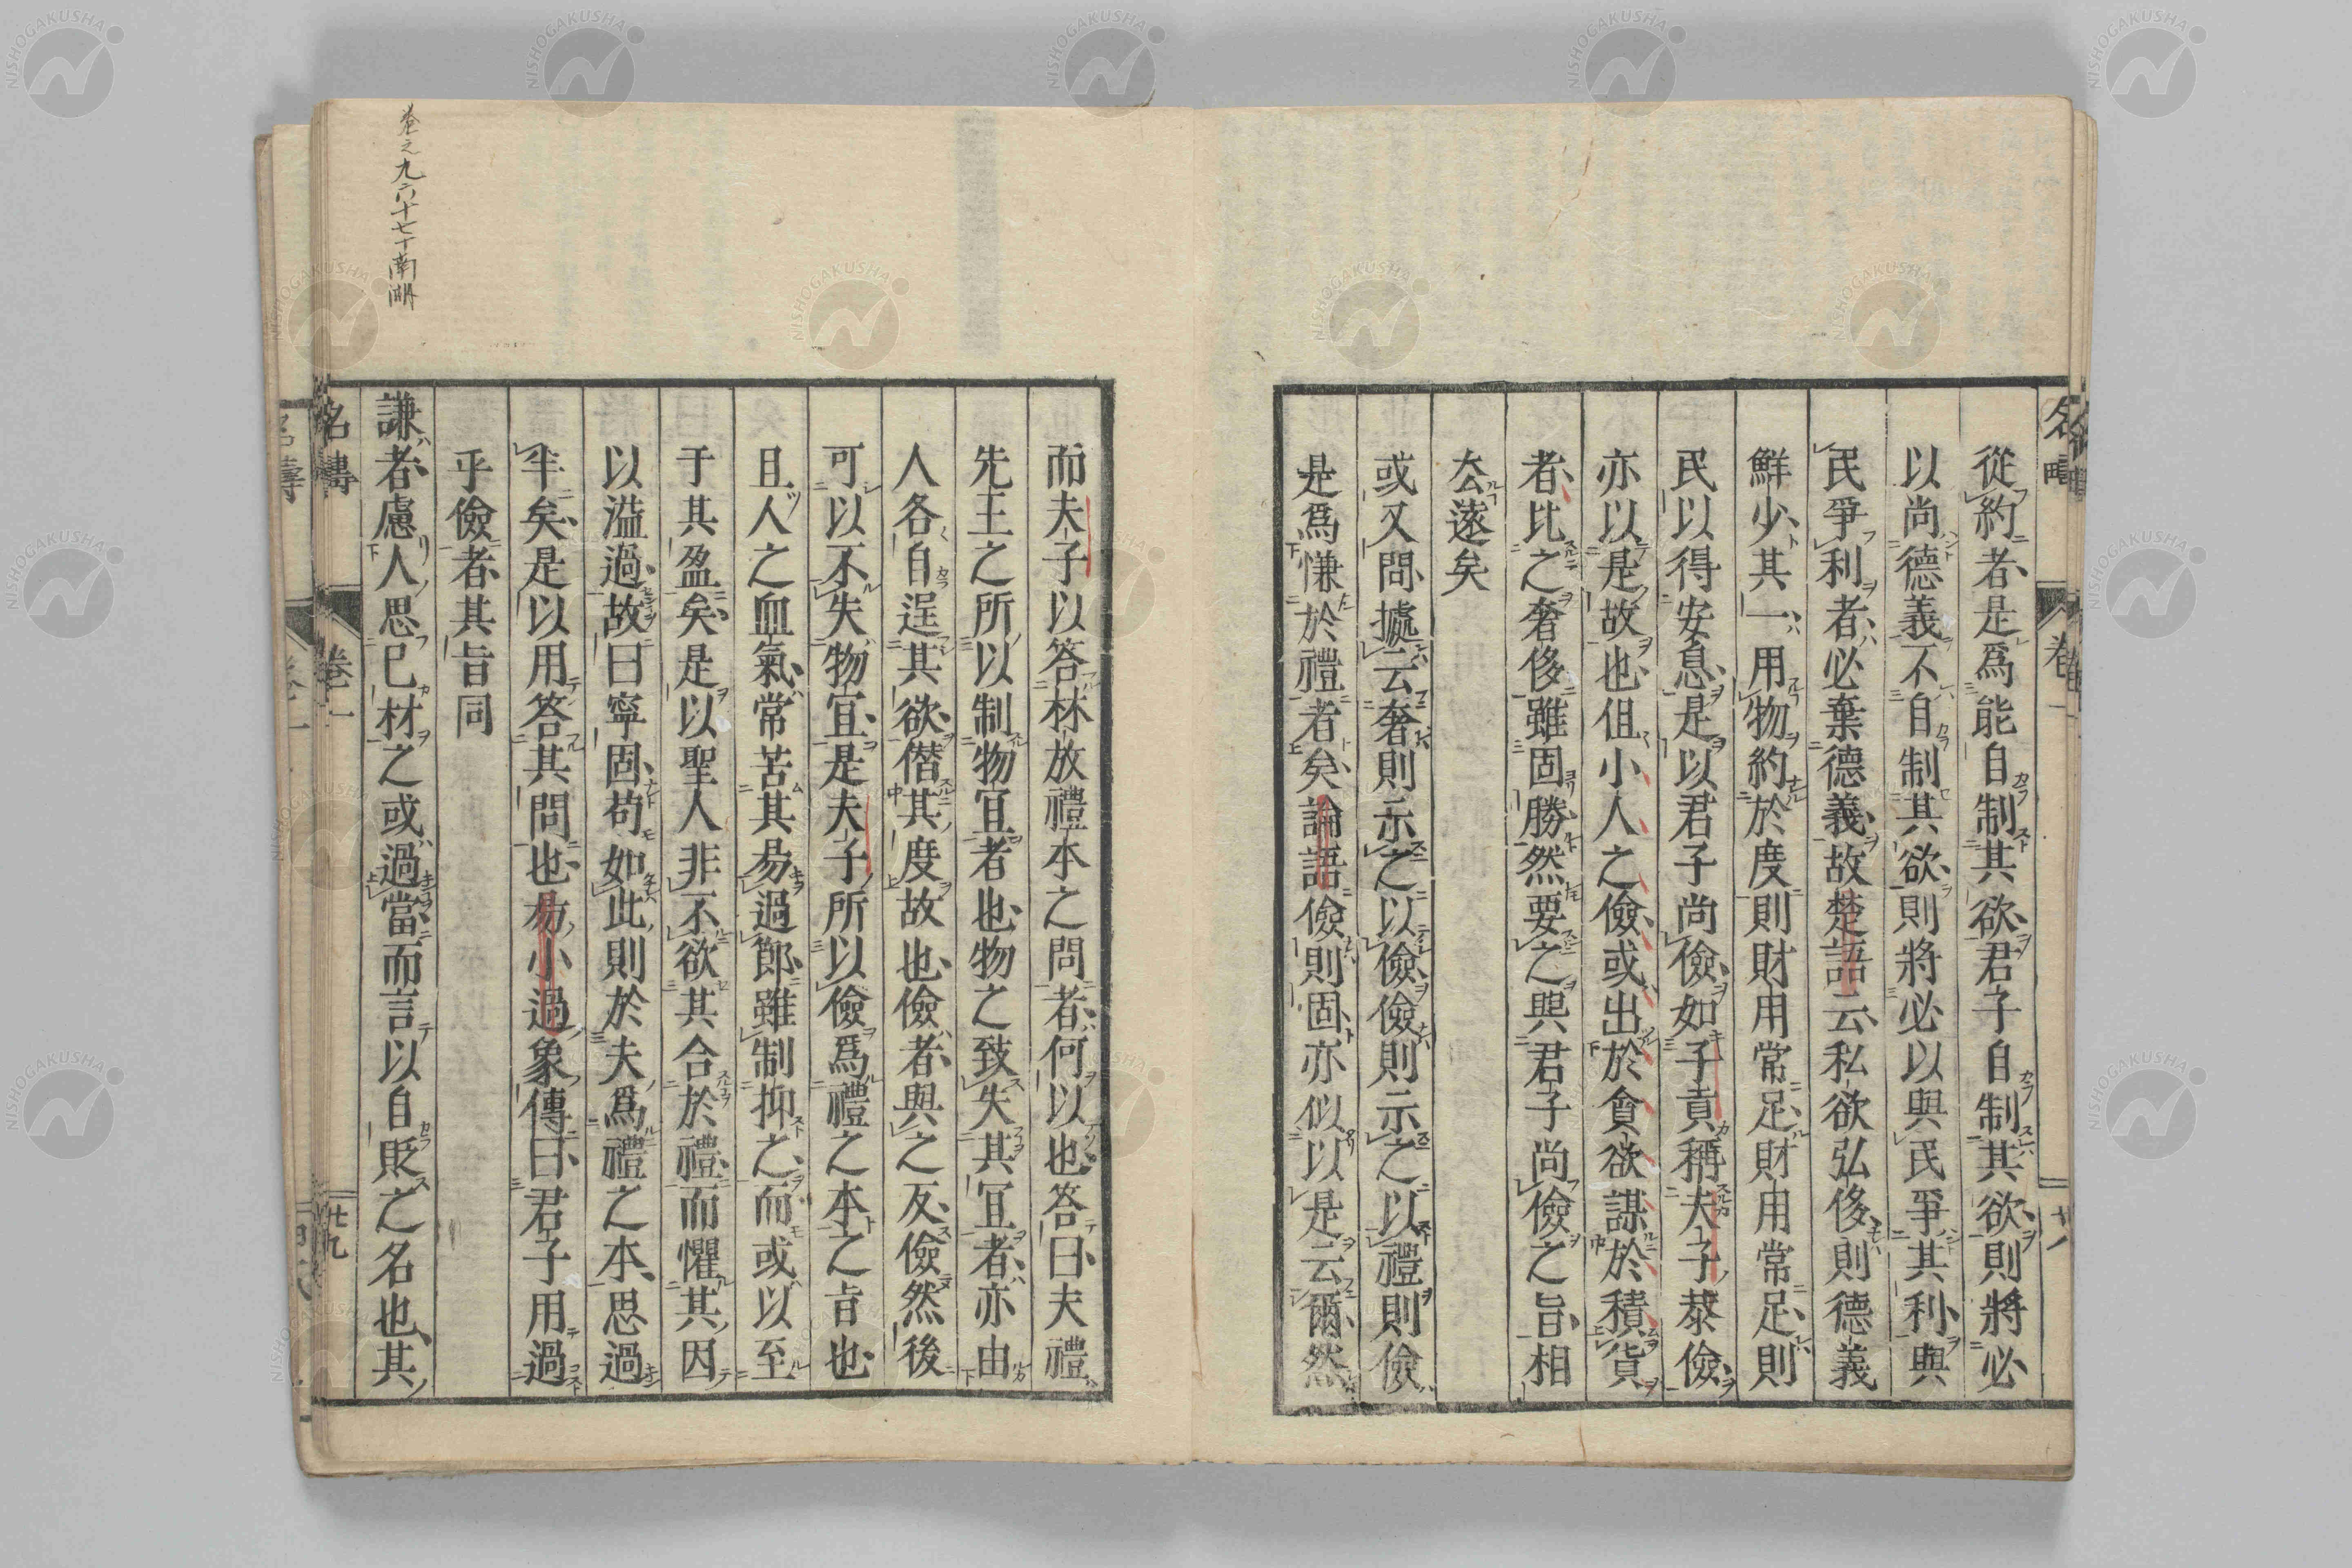 從約者是爲能自制其欲君子自制其欲則將必
以尚德義不自制其欲則將必以與民爭其利與
民爭利者必棄德義故楚語云私欲弘侈則德義
鮮少其一用物約於度則財用常足財用常足則
民以得安息是以君子尚儉如子貢稱夫子恭儉
亦以是故也但小人之儉或出於貪欲謀於積貨
者比之奢侈雖固勝然要之與君子尚儉之旨相
去遠矣
或又問據云奢則示之以儉儉則示之以禮則儉
是爲慊於禮者矣論語儉則固亦似以是云爾然
而夫子以答林放禮本之問者何以也答曰夫禮
先王之所以制物宜者也物之致失其宜者亦由
人各自逞其欲僭其度故也儉者與之反儉然後
可以不失物宜是夫子所以儉爲禮之本之旨也
且人之血氣常苦其易過節雖制抑之而或以至
于其盈矣是以聖人非不欲其合於禮而懼其因
以溢過故曰寧固苟如此則於夫爲禮之本思過
半矣是以用答其問也易小過象傳曰君子用過
乎儉者其旨同
謙者慮人思己材之或過當而言以自貶之名也其
名疇
卷一
廿九
卷之九六十七丁南湖
NISHOGAKUSHA